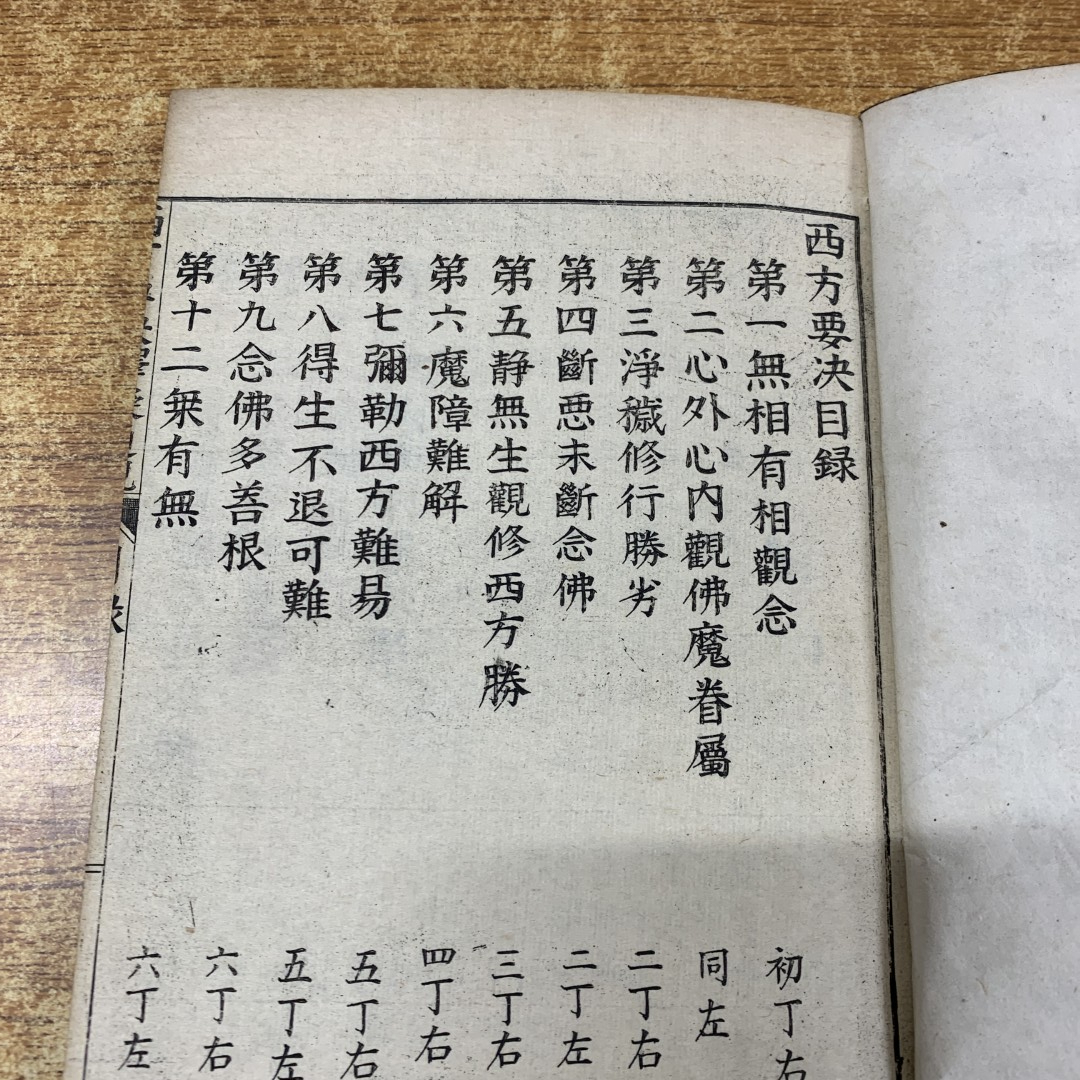 西方要決目録
第一無相有相觀念
初丁右
第二心外心内觀佛魔眷屬
同左
第三淨穢修行勝劣
二丁右
第四斷惡未斷念佛
二丁左
第五静無生觀修西方勝
三丁右
第六魔障難解
四丁右
第七彌勒西方難易
五丁右
第八得生不退可難
五丁左
第九念佛多善根
六丁右
第十二乗有無
六丁左